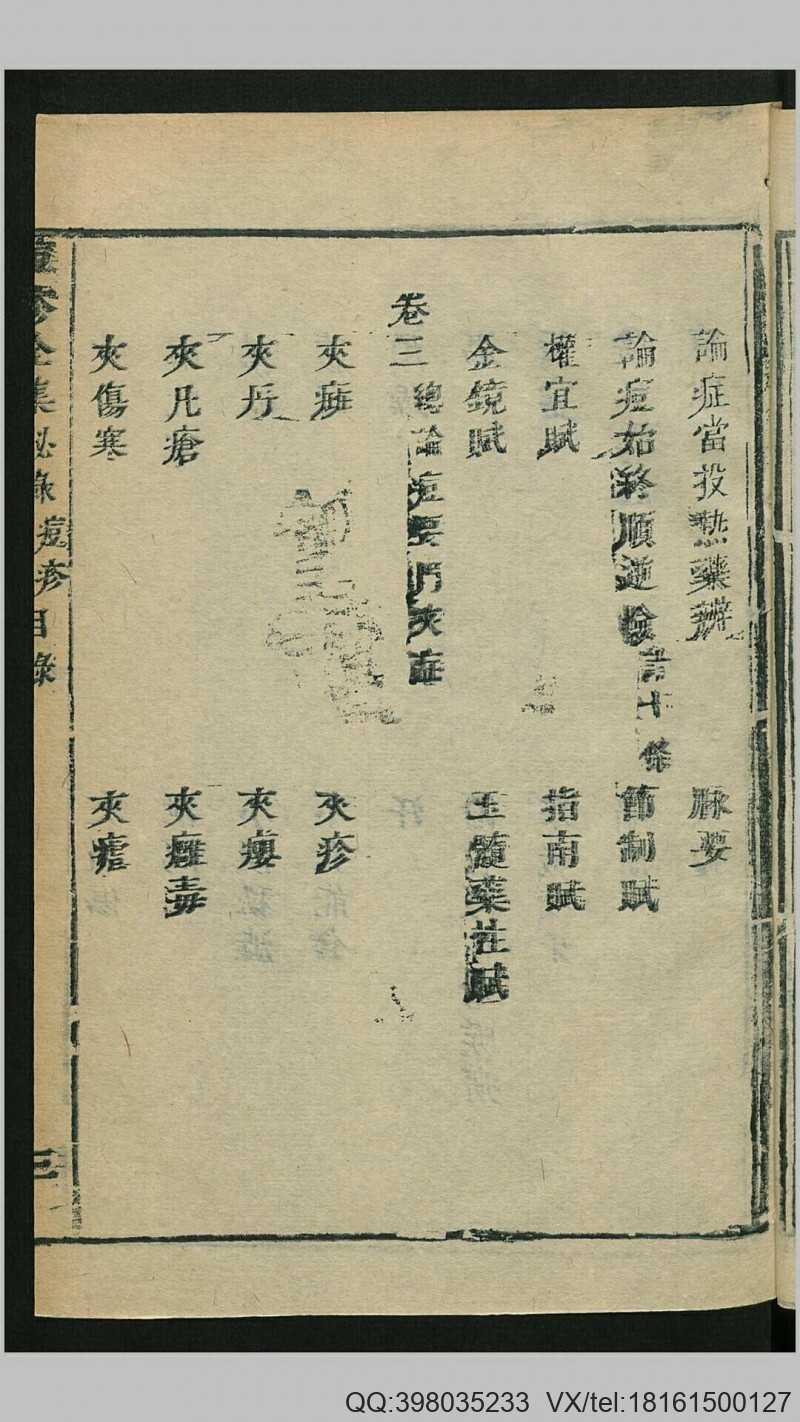 論症當投熱藥辨　脉要
論痘始終順逆險　訣十條　節制賦
權宜賦　指南賦
金鏡賦　玉髓藥性賦
卷三　總論痘要門夾症
夾癍　夾疹
夾丹　夾癭
夾凡瘡　夾癰毒
夾傷寒　夾瘧
疹全集秘錄　痘疹目錄　三
QQ:398035233 VX/tel:18161500127